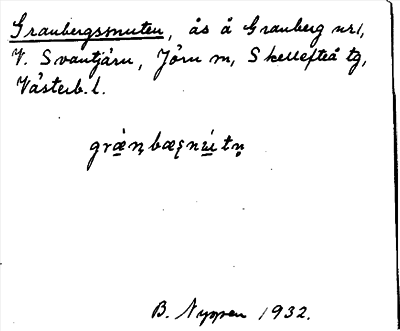 Granbergsnuten, ås å Granberg nr 1,
V. Svantjärn, Jörn sn, Skellefteå tg,
Västerb. l.
græ̀n̥bæʂnʉ̀tn̥
B. Nyman 1932.